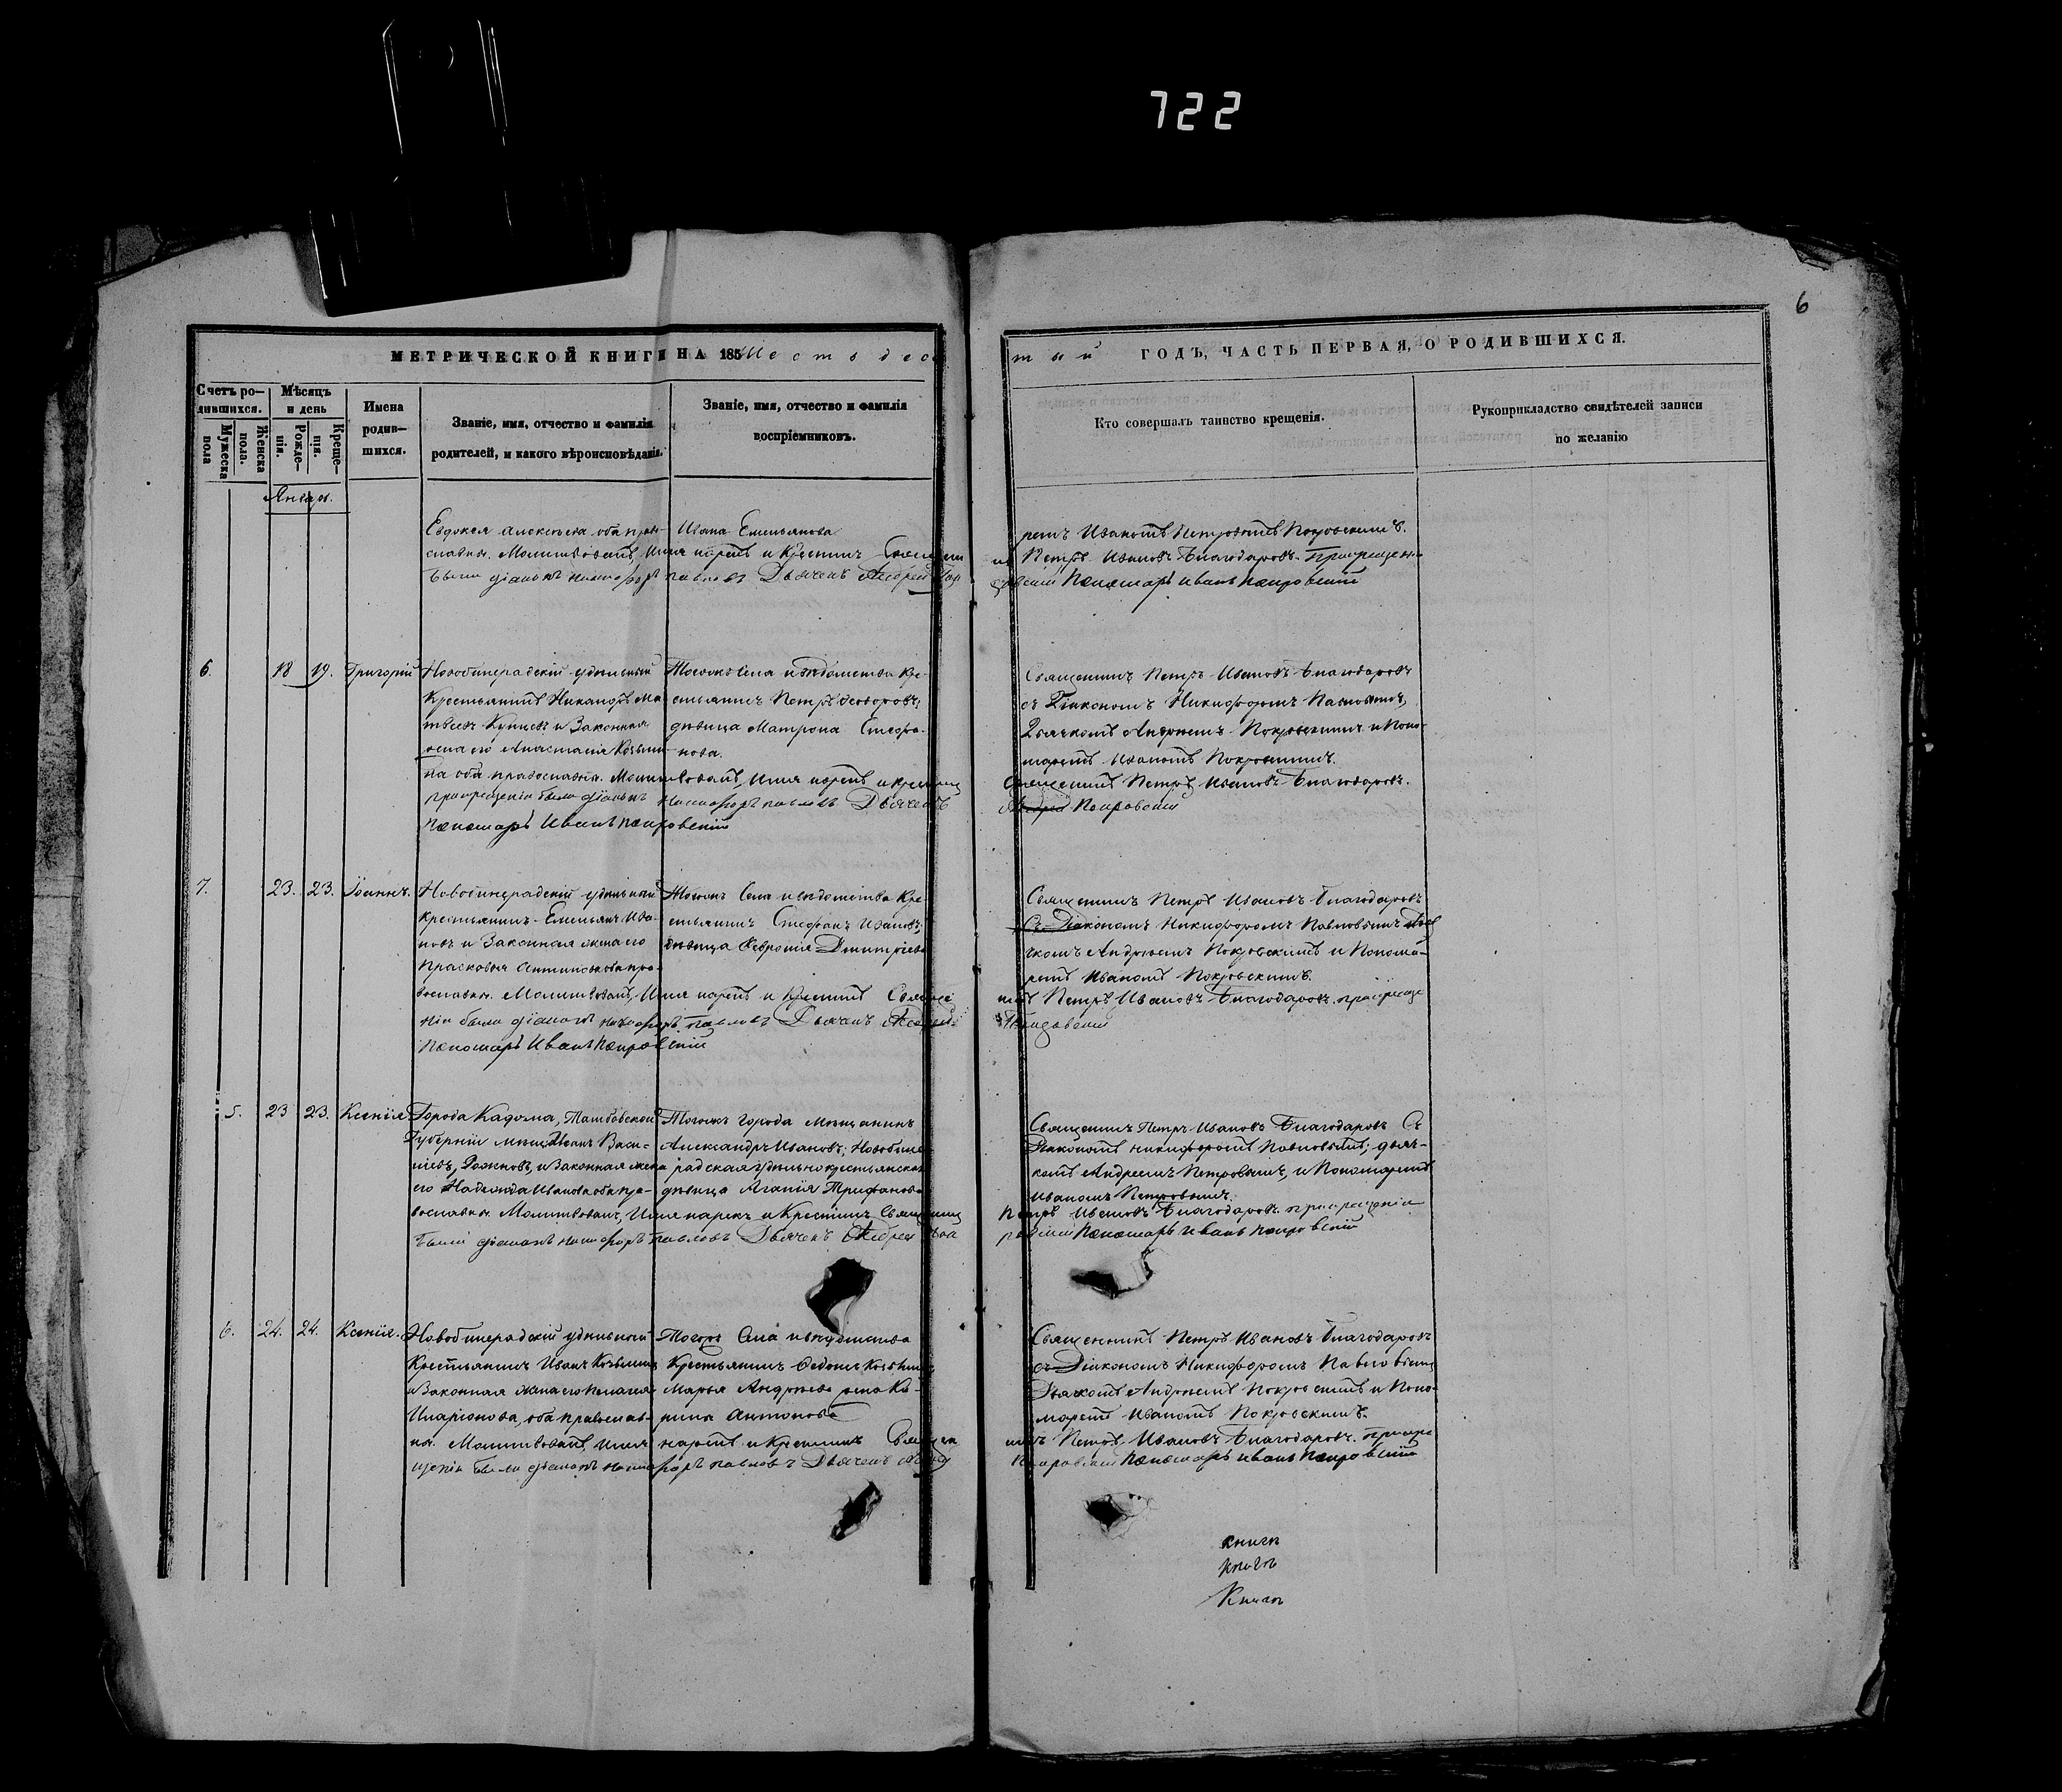 722
6
МЕТРИЧЕСКОЙ КНИГИ НА 185 Шестьдеся
тый ГОДЪ, ЧАСТЬ ПЕРВАЯ, О РОДИВШИХСЯ.
Счетъ ро-
дившихся.
Мужеска
пола
Женска
пола.
Мѣсяцъ
и день
Рожде-
нія.
Креще-
нія.
Имена
родив-
шихся.
Званіе, имя, отчество и фамилія
родителей, и какого вѣроисповѣданія.
Званіе, имя, отчество и фамилія
воспріемниковъ.
Кто совершалъ таинство крещенія.
Рукоприкладство свидѣтелей записи
по желанію
Январь.
Евдокея Алексѣева оба пра-
славны. Молитвовалъ, имя нарекъ и Крестилъ
были діаконъ Никифоръ Павловъ Дьячекъ Андрей
Ивана Емельянова
ремъ Иваномъ Петровымъ Покровскимъ.
Петръ Ивановъ Благодаровъ.
Пономарь Иванъ Покровскій
6. 18 19. Григорій
удѣльный
Крестьянинъ Никаноръ Ма-
твеевъ и Законная
жена его Анастасія Козьми-
на оба православны. Молитвовалъ, имя нарекъ и крестилъ
были діаконъ Никифоръ Павловъ Дьячекъ
Пономарь Иванъ Покровскій
Тогожъ Села и вѣдомства Кре-
стьянинъ Петръ Ѳеодоровъ;
дѣвица Матрона Стефа-
нова.
Священникъ Петръ Ивановъ Благодаровъ
съ Діакономъ Никифоромъ Павловымъ,
Дьячкомъ Андреемъ Покровскимъ и Поно-
маремъ Иваномъ Покровскимъ.
Священникъ Петръ Ивановъ Благодаровъ.
Покровскій
7. 23. 23. Іоаннъ.
удѣльный
крестьянинъ Емельянъ Ива-
новъ и Законная жена его
Прасковья
вославны. Молитвовалъ, Имя нарекъ и Крестилъ
нiи были діаконъ Никифоръ Павловъ Дьячекъ Андрей
Пономарь Иванъ Покровскій
Тогожъ Села и вѣдомства Кре-
стьянинъ Стефанъ Ивановъ;
дѣвица Февронія Дмитріева
Священникъ Петръ Ивановъ Благодаровъ
Съ Діакономъ Никифоромъ Павловымъ Дья
чкомъ Андреемъ Покровскимъ и Понома-
ремъ Иваномъ Покровскимъ.
Петръ Ивановъ Благодаровъ.
Покровскій
5. 23 23. Ксенія
Города Кадома, Тамбовской
Губерніи мѣщ. Иванъ Васи-
льевъ, и Законная жена
его Надежда Иванова оба пра-
вославны. Молитвовалъ, Имя нарекъ и Крестилъ
были діаконъ Никифоръ Павловъ Дьячекъ Андрей
Тогожъ города Мѣщанинъ
Александръ Ивановъ;
радская удѣльно крестьянская
дѣвица Агапія Трифанова
Священникъ Петръ Ивановъ Благодаровъ Съ
Діакономъ Никифоромъ Павловымъ, дьяч-
комъ Андреемъ Петровымъ, и Пономаремъ
Иваномъ Петровымъ.
Петръ Ивановъ Благодаровъ. при крещеніи
Пономарь Иванъ Покровскій
6. 24. 24. Ксенія.
удѣльный
Крестьянинъ Иванъ Козьминъ
и Законная жена его Пелагія
Иларіонова, оба православ-
ны. Молитвовалъ, имя нарекъ и Крестилъ
щеніи были діаконъ Никифоръ Павловъ Дьячекъ
Тогожъ Села и вѣдомства
Крестьянинъ Ѳедотъ Козьминъ
Марья Андреева жена Ка-
пина Антонова
Священникъ Петръ Ивановъ Благодаровъ
съ Діакономъ Никифоромъ Павловымъ
Дьячкомъ Андреемъ Покровскимъ и Поно-
маремъ Иваномъ Покровскимъ.
Петръ Ивановъ Благодаровъ.
Покровскій Пономарь Иванъ Покровскій
книги
книгъ
Книгъ